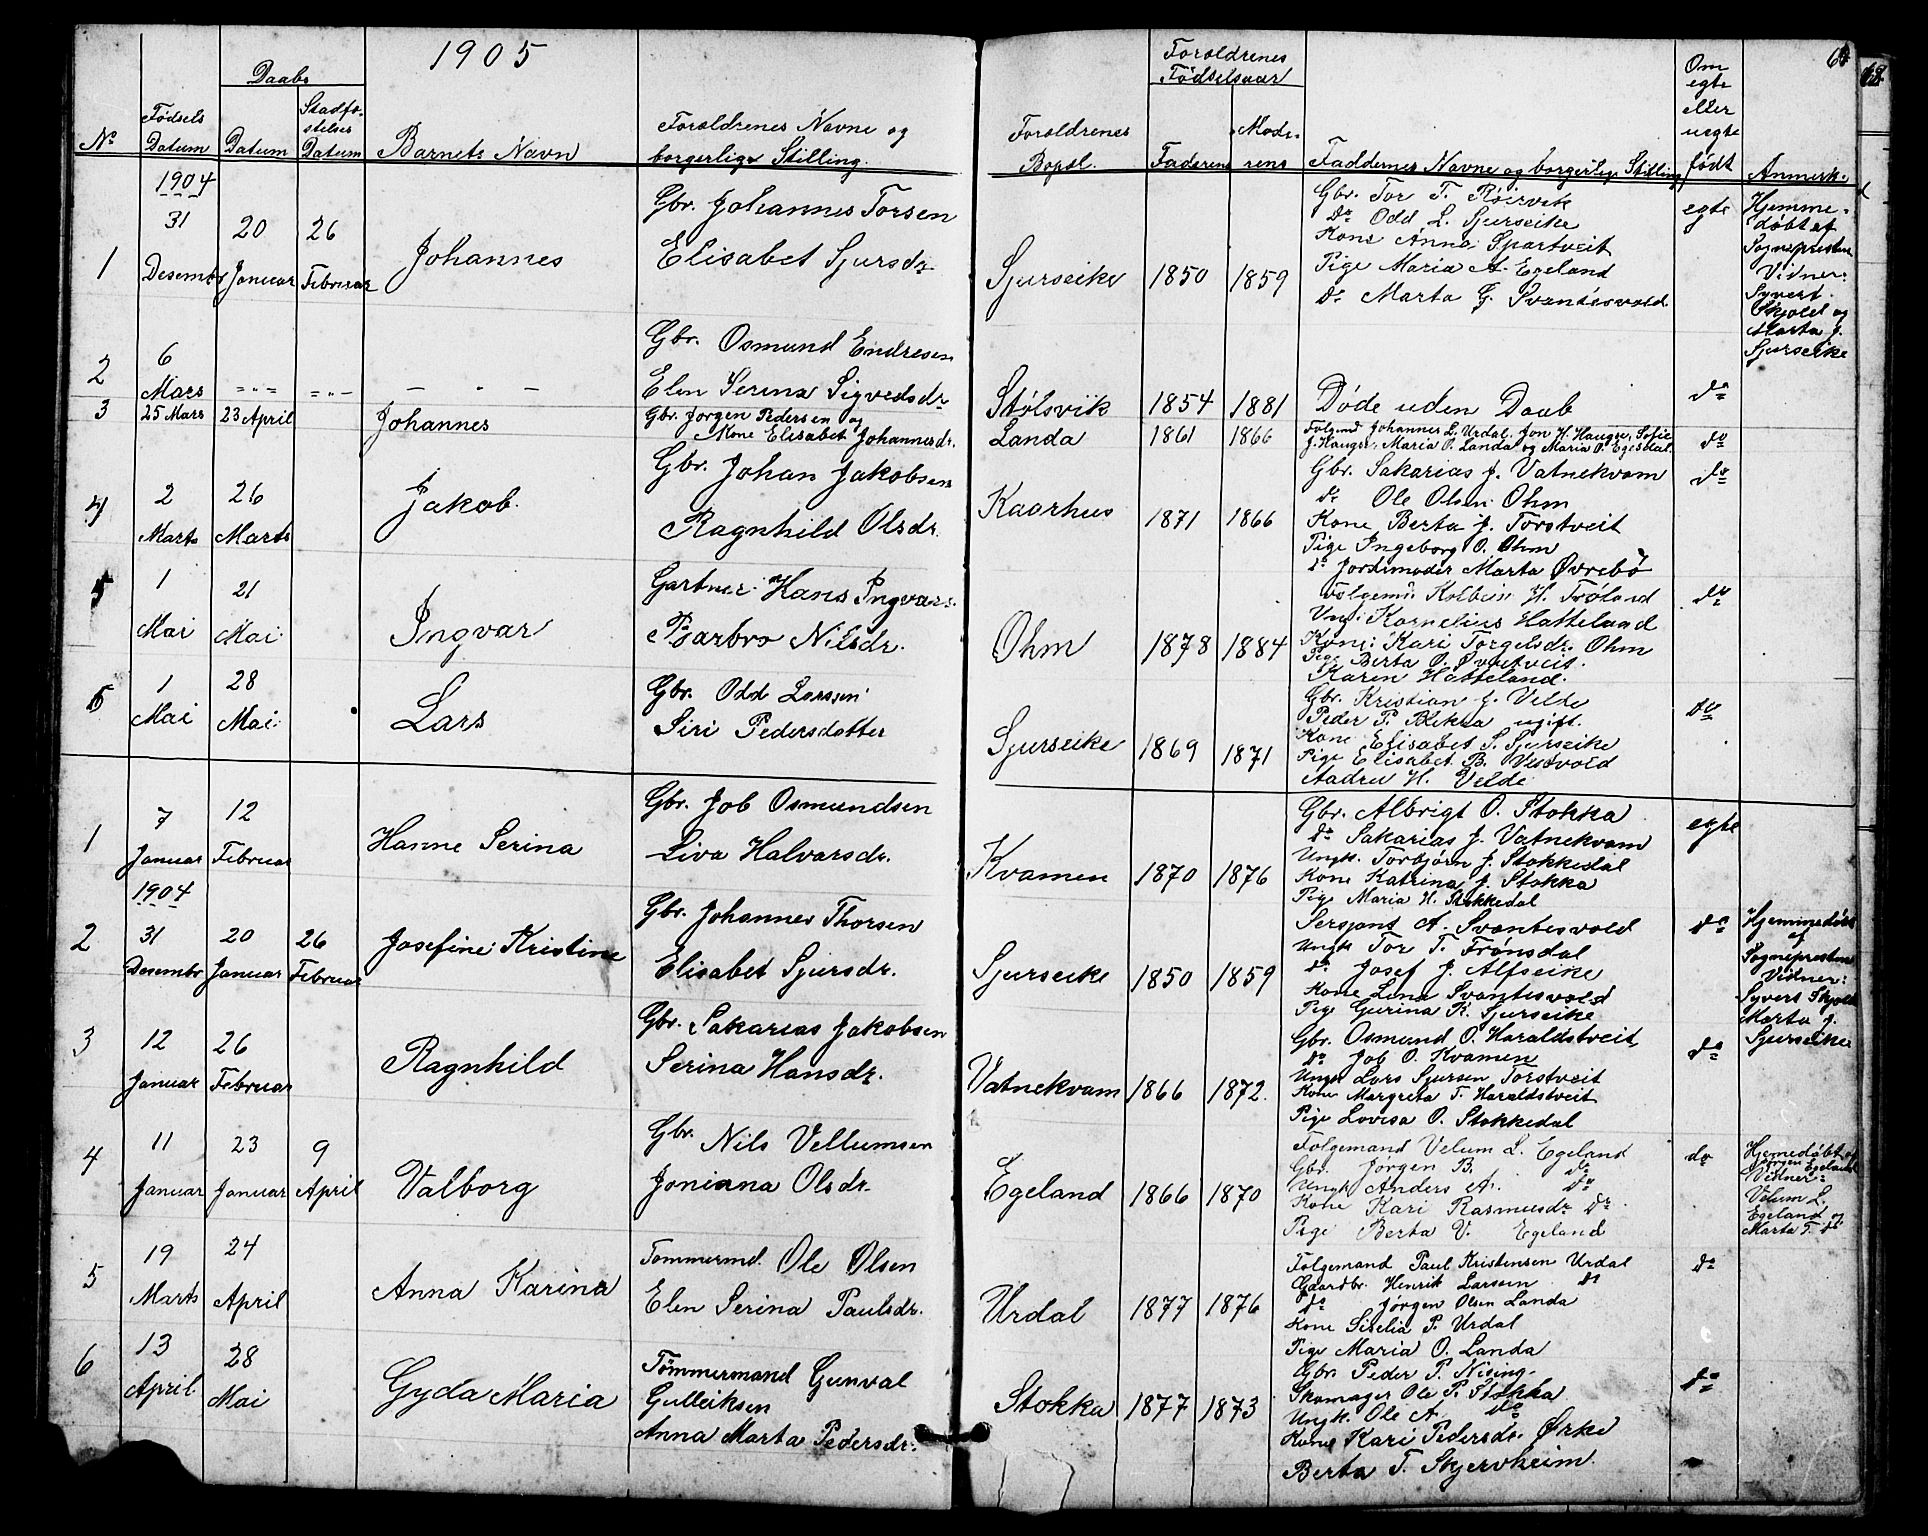 1905
Daabs
Foroldrenes
Fødselsaar
Om
egte
eller
uegte
født
Nº
Fødsels
Datum
Datum
Stadfæ-
stelses
Datum
Barnets Navn
Foroldrenes Navne og
borgerlige Stilling.
Foroldrenes
Bopæl.
Faderens
Mode-
rens
Faddernes Navne og borgerlige Stilling
Anmerk.
1904
1
31
Desembr
20
Januar
26
Februar
Johannes
Gbr. Johannes Torsen
Elisabet Sjursdr.
Sjurseike
1850
1859
Gbr. Tor T. Røiervik
do Odd L. Sjurseike
Kone Anna Spartveit
Pige Maria A. Egeland
do Marta G. Svantesvold
egte
Hjemme-
døbt af
Sognepresten
Vidner:
Syvert
Skjold og
Marta J.
Sjurseike
2
6
Mars
Gbr. Osmund Endresen
Elen Serina Sigvedsdr.
Stølsvik
1854
1881
Døde uden Daab
do
3
25 Mars
23 April
Johannes
Gbr. Jørgen Pedersen og
Kone Elisabet Johannesdr.
Landa
1861
1866
Folgmd Johannes L. Urdal. Jon H. Hauge, Sofie
J. Hauge, Maria O. Landa og Maria O. Egesdal.
do
4
2
Marts
26
Marts
Jakob.
Gbr. Johan Jakobsen
Ragnhild Olsdr.
Kaarhus
1871
1866
Gbr. Sakarias J. Vatnekvam
do Ole Olsen Ohm
Kone Berta J. Torstveit
Pige Ingeborg O. Ohm
do Jordemoder Marta Øvrebø
do
5
1
Mai
21
Mai
Ingvar
Gartner Hans Ingvars.
Barbro Nilsdr.
Ohm
1878
1884
Folgem. Kolben H. Frøland
Ung. Kornelius Hatteland
Kone: Kari Torgelsdr. Ohm
Pige Berta O. Øvretveit.
Karen Hatteland.
do
6
1
Mai
28
Mai
Lars
Gbr. Odd Larssen
Siri Pedersdatter
Sjurseike
1869
1871
Gbr. Kristian G. Velde
Peder P. Blikra ugift.
Kone Elisabet S. Sjurseike
Pige Elisabet B. Vestvold
Aadru H. Velde
do
1
7
Januar
12
Februar
Hanne Serina
Gbr. Job Osmundsen
Liva Halvarsdr.
Kvamen
1870
1876
Gbr. Albrigt O. Stokka
do Sakarias J. Vatnekvam
Ungk. Torbjørn J. Stokkedal
Kone Katrina J. Stokka
Pige Maria H. Stokkedal
egte
1904
2
31
Desembr
20
Januar
26
Februar
Josefine Kristine
Gbr. Johannes Thorsen
Elisabet Sjursdr.
Sjurseike
1850
1859
Sersjant A. Svantesvold
Ungk Tor T. Frønsdal
do Josef J. Alfseike
Kone Lina Svantesvold
Pige Gurina K. Sjurseike
do
Hjemmedøbt
af
Sognepresten
Vidner:
Syvert Skjold
Marta J.
Sjurseike
3
12
Januar
26
Februar
Ragnhild
Gbr. Sakarias Jakobsen
Serina Hansdr.
Vatnekvam
1866
1872.
Gbr. Osmund O. Haraldstveit
do Job O. Kvamen
Ungk Lars Sjursen Torstveit
Kone Margreta T. Haraldstveit
Pige Lovisa O. Stokkedal
do
4
11
Januar
23
Januar
9
April
Valborg
Gbr. Nils Vellumsen
Joniana Olsdr.
Egeland
1866
1870
Folgemand Velum L. Egeland
Gbr. Jørgen B. do
Ungk Anders A. do
Kone Kari Rasmusdr do
Pige Berta V. Egeland
do
Hjemedøbt af
Jørgen Egeland
Vidner:
Velum L.
Egeland og
Marta T. do
5
19
Marts
24
April
Anna Karina
Tommermd. Ole Olsen
Elen Serina Paulsdr.
Urdal
1877
1876
Folgemand Paul Kristensen Urdal
Gaardbr. Henrik Larsen do
do Jørgen Olsen Landa
Kone Siselia P. Urdal
Pige Maria O. Landa
do
6
13
April
28
Mai
Gyda Maria
Tømmermand Gunval
Gulleiksen
Anna Marta Pedersdr.
Stokka
1877
1873
Gbr. Peder P. Nising
Skomager Ole P. Stokka
Ungk. Ole A. do
Kone Kari Pedersdr. Ørke
Berta T. Skjervheim.
do